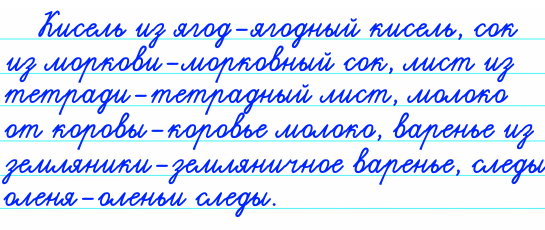 Кисель из ягод–ягодный кисель, сок
из моркови–морковный сок, лист из
тетради–тетрадный лист, молоко
от коровы–коровье молоко, варенье из
земляники–земляничное варенье, следы
оленя–оленьи следы.